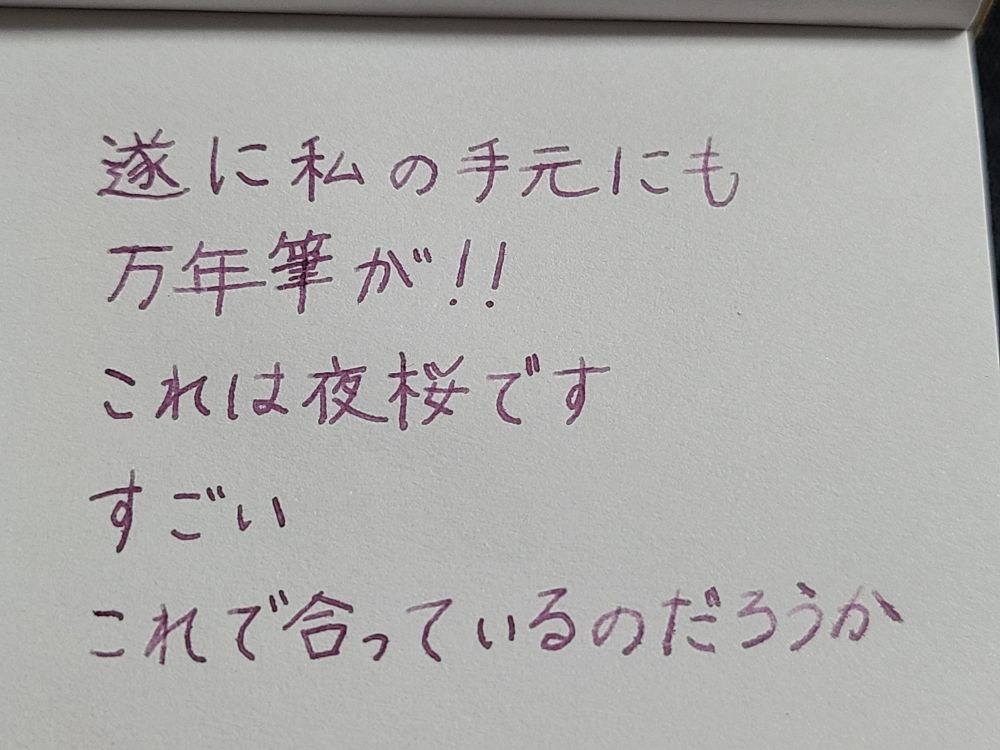 遂に私の手元にも
万年筆が!!
これは夜桜です
すごい
これで合っているのだろうか